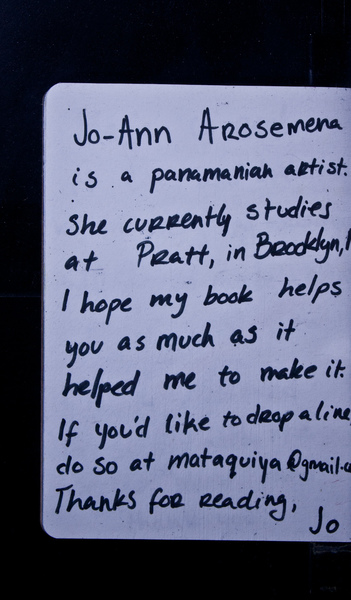 Jo-Ann Arosemena
is a panamanian artist.
She currently studies
at Pratt, in Brooklyn,
I hope my book helps
you as much as it
helped me to make it.
If you'd like to drop a line,
do so at mataquiya@gmail.c
Thanks for reading,
Jo